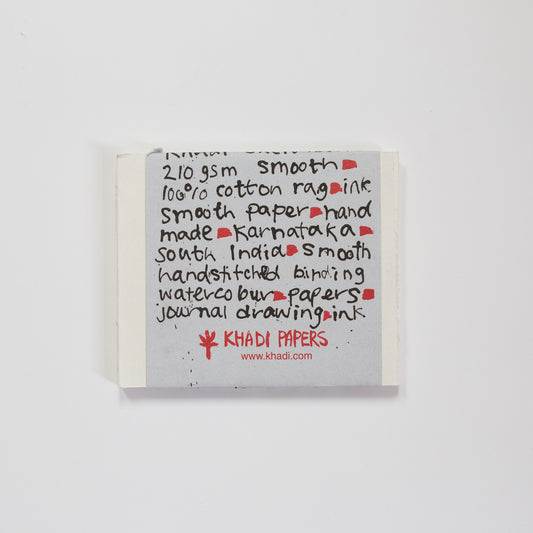 210 gsm smooth
100% cotton rag ink
smooth paper hand
made Karnataka
South India smooth
handstitched binding
watercolour papers
journal drawing ink
KHADI PAPERS
www.khadi.com